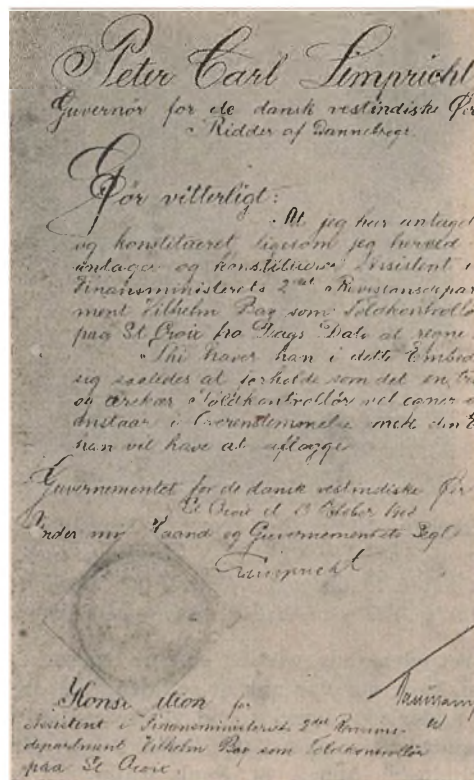 Peter Carl Limpricht
Guvernör for de dansk vestindiske Øer
Ridder af Dannebroge.
Gör vitterligt:
At jeg har antaget
og konstitueret, ligesom jeg herved
antager og konstituerer Assistent i
Finansministeriets 2det Revisionsdepar
ment Vilhelm Bay som Toldkontrollör
paa St Croix fra Dags Dato at regne.
Thi haver han i dette Embed
sig saaledes at forholde som det en tr
og ærekær Toldkontrollör vel egner
anstaar i Overensstemmelse med den E
han vil have at aflægge
Guvernementet for de dansk vestindiske Øer
St Croix d 13 October
Under min Haand og Guvernementets Segl
Limpricht
Konsti tion for
Assistent i Finansministeriets 2det Revisions-
department Vilhelm Bay som Toldkontrollör
paa St Croix.